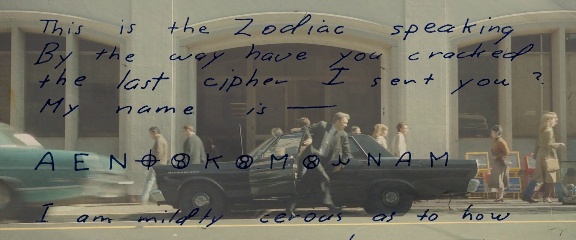 This is the Zodiac speaking
By the way have you cracked
the last cipher I sent you?
My name is ——
A E N ⌖ ⊗ K ⊗ M ⊗ ⌵ N A M
I am mildly cerous as to how